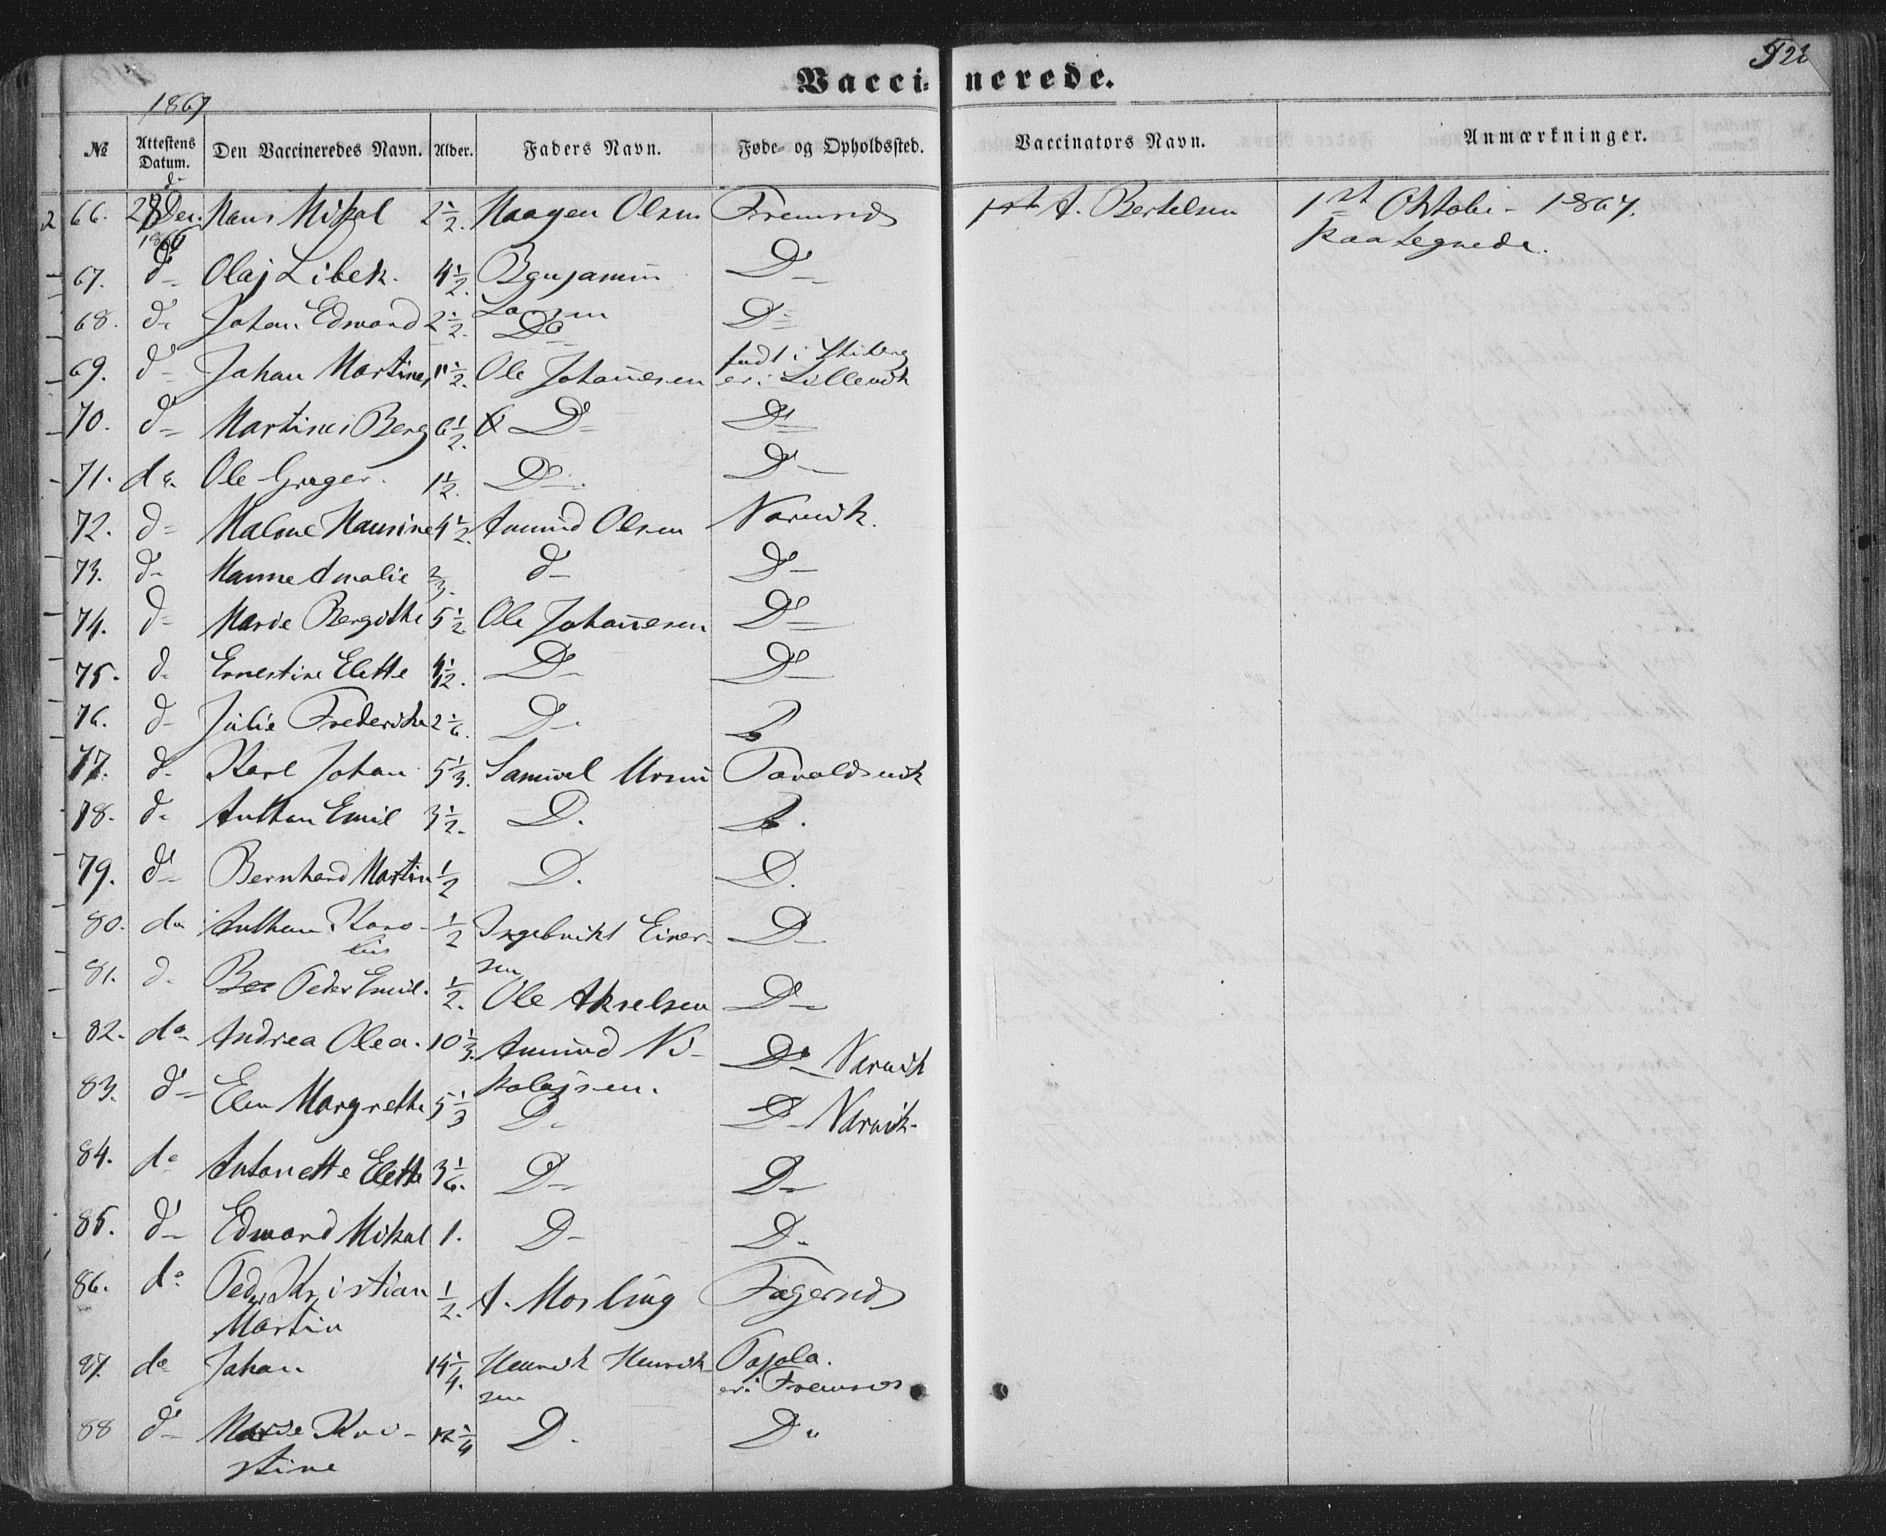 522
Vaccinerede.
1867
№ Attestens Datum. Den Vaccineredes Navn. Alder. Faders Navn. Føde- og Opholdssted. Vaccinators Navn. Anmærkninger.
66. Hans Mikal 2 1/2. Haagen Olsen Fremnes A. Bertelsen 1st Oktobr 1867.
paategnede.
67. do Olaj Libek. 4 1/2. Benjamin Do
Larsen
68. do Johan Edward 2 1/2. Do Do
69. do Johan Martines 11 1/2. Ole Johanesen født i
er i Lillevik
70. do Martines Berg 6 1/2. Do Do
71. do Ole Greger. 1 1/2. Do Do
72. do Malone Hansine 4 1/2. Amund Olsen Narvik.
73. do Hanne Amalie 2/3. do Do
74. do Marie Bergithe 5 1/2 Ole Johanesen Do
75. do Ernestine Elette 4 1/2. Do Do
76. do Julie Frederike 2 1/6. D. D
77. d. Karl Johan 5 1/3. Samuel Ursin Taraldsvik
78. d. Anthon Emil 3 1/2. D. D.
79. do Bernhard Martin 1/2 D. D.
80. do Anthon Karo- 1/2 Ingebrikt Einer- D
lius sen
81. d. Peder Emil. 1/2. Ole Akselsen Do
82. do Andrea Olea. 10 1/3. Amund Ni- Do Narvik
kolajsen.
83. do Elen Margrethe 5 1/3 D. D Narvik.
84. do Antonette Elette 3 1/6. D Do
85. do Edward Mikal 1. D D.
86. do Peder Kristian 1/2. A. Mosling Fagernes
Martin
87. do Johan 14 1/4. Henrik Henrik- Pajala.
sen er i Fremnes
88 do Marie Kri- 12 1/4 D. D"
stine